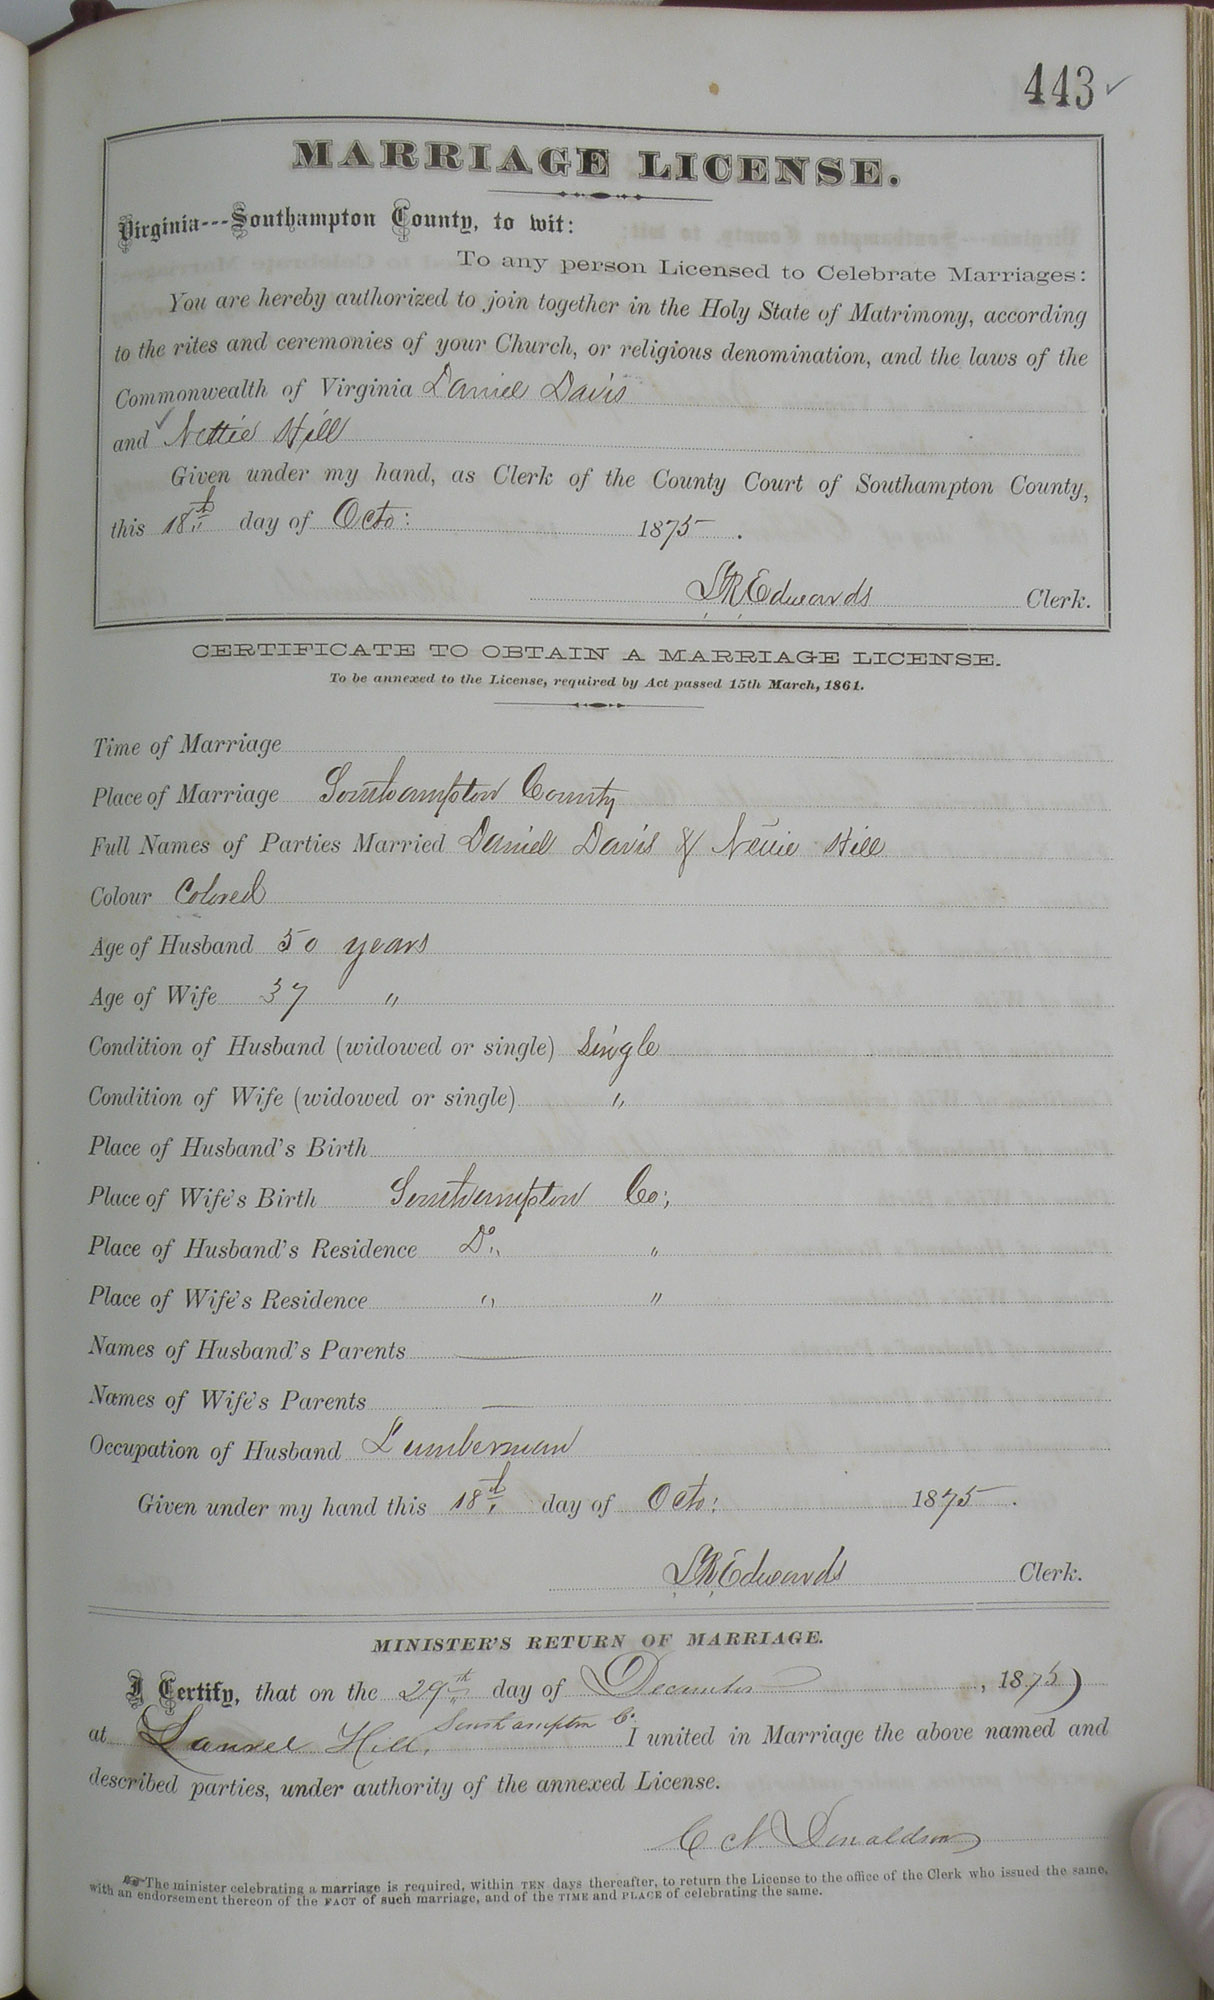 443 ✓
MARRIAGE LICENSE.
Virginia---Southampton County, to wit:
To any person Licensed to Celebrate Marriages:
You are hereby authorized to join together in the Holy State of Matrimony, according
to the rites and ceremonies of your Church, or religious denomination, and the laws of the
Commonwealth of Virginia Daniel Davis
and ✓ Nettie Hill
Given under my hand, as Clerk of the County Court of Southampton County,
this 18th day of Octo: 1875.
L R Edwards Clerk.
CERTIFICATE TO OBTAIN A MARRIAGE LICENSE.
To be annexed to the License, required by Act passed 15th March, 1861.
Time of Marriage
Place of Marriage Southampton County
Full Names of Parties Married Daniel Davis & Nettie Hill
Colour Colored
Age of Husband 50 years
Age of Wife 37 "
Condition of Husband (widowed or single) Single
Condition of Wife (widowed or single) "
Place of Husband's Birth
Place of Wife's Birth Southampton Co:
Place of Husband's Residence Do. "
Place of Wife's Residence " "
Names of Husband's Parents —
Names of Wife's Parents —
Occupation of Husband Lumberman
Given under my hand this 18th day of Octo: 1875.
L R Edwards Clerk.
MINISTER'S RETURN OF MARRIAGE.
I Certify, that on the 29th day of December, 1875)
at Laurel Hill, Southampton Co. I united in Marriage the above named and
described parties, under authority of the annexed License.
C N Donaldson
The minister celebrating a marriage is required, within TEN days thereafter, to return the License to the office of the Clerk who issued the same,
with an endorsement thereon of the FACT of such marriage, and of the TIME and PLACE of celebrating the same.